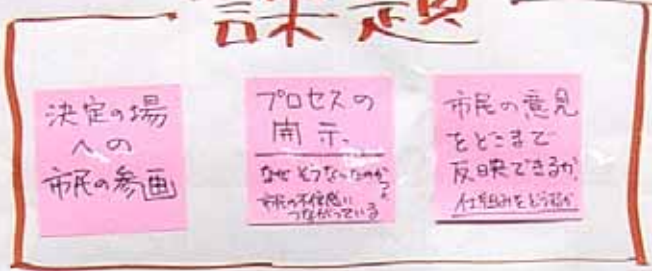 課題
決定の場
への
市民の参画
プロセスの
開示、
なぜそうなったのか
市民の不信感に
つながっている
市民の意見
をどこまで
反映できるか
仕組みをどうするか